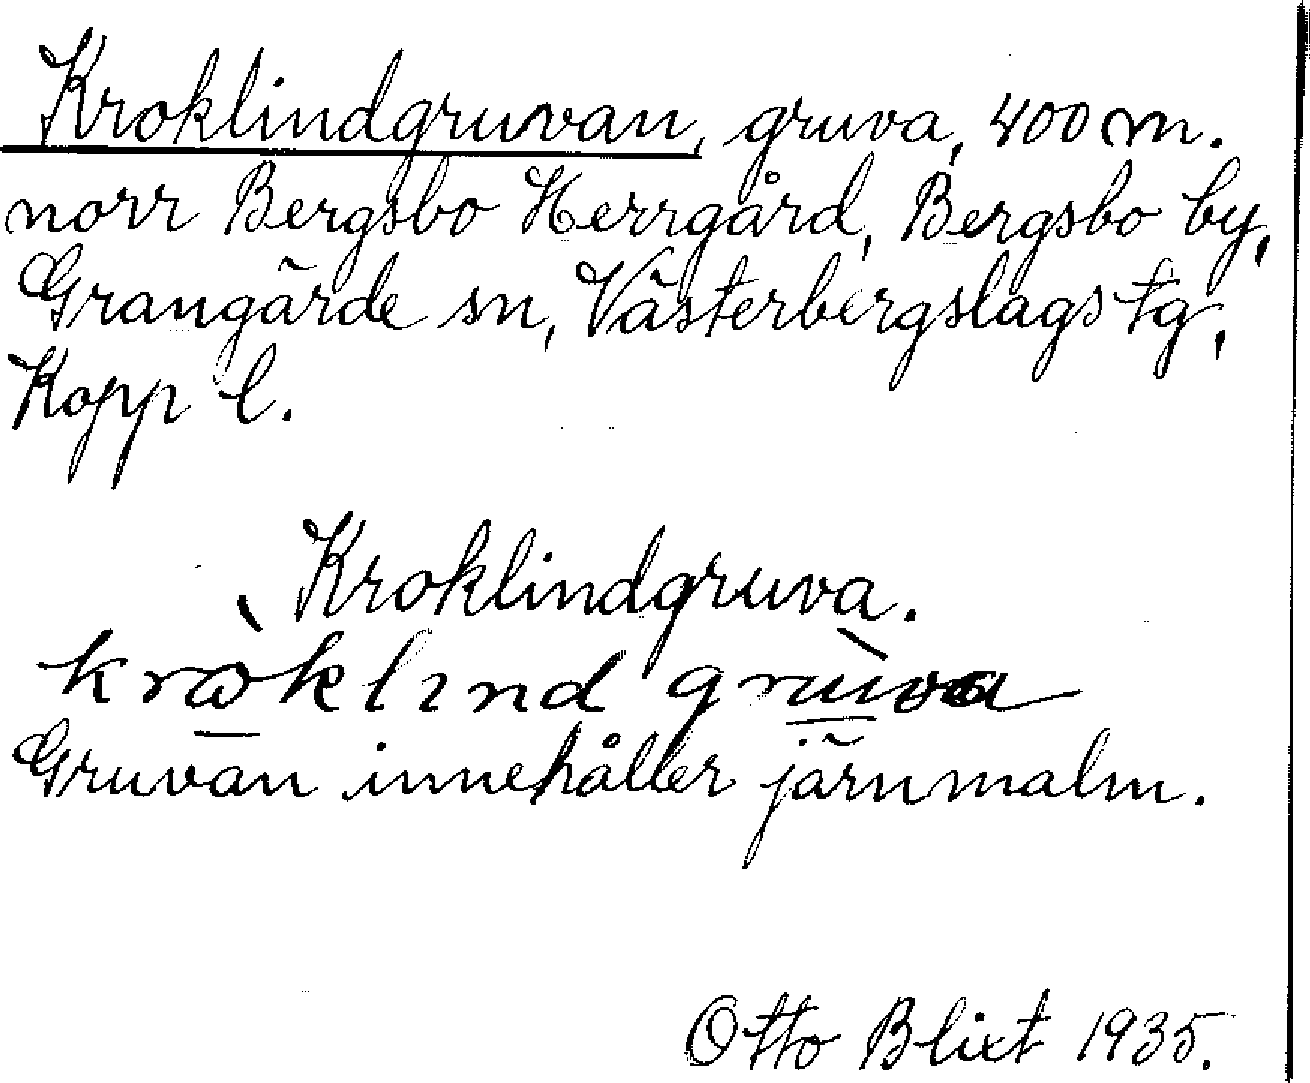 Kroklindgruvan, gruva, 400 m.
norr Bergsbo Herrgård, Bergsbo by,
Grangärde sn, Västerbergslags tg,
Kopp l.
Kroklindgruva.
Gruvan innehåller järnmalm.
Otto Blixt 1935.